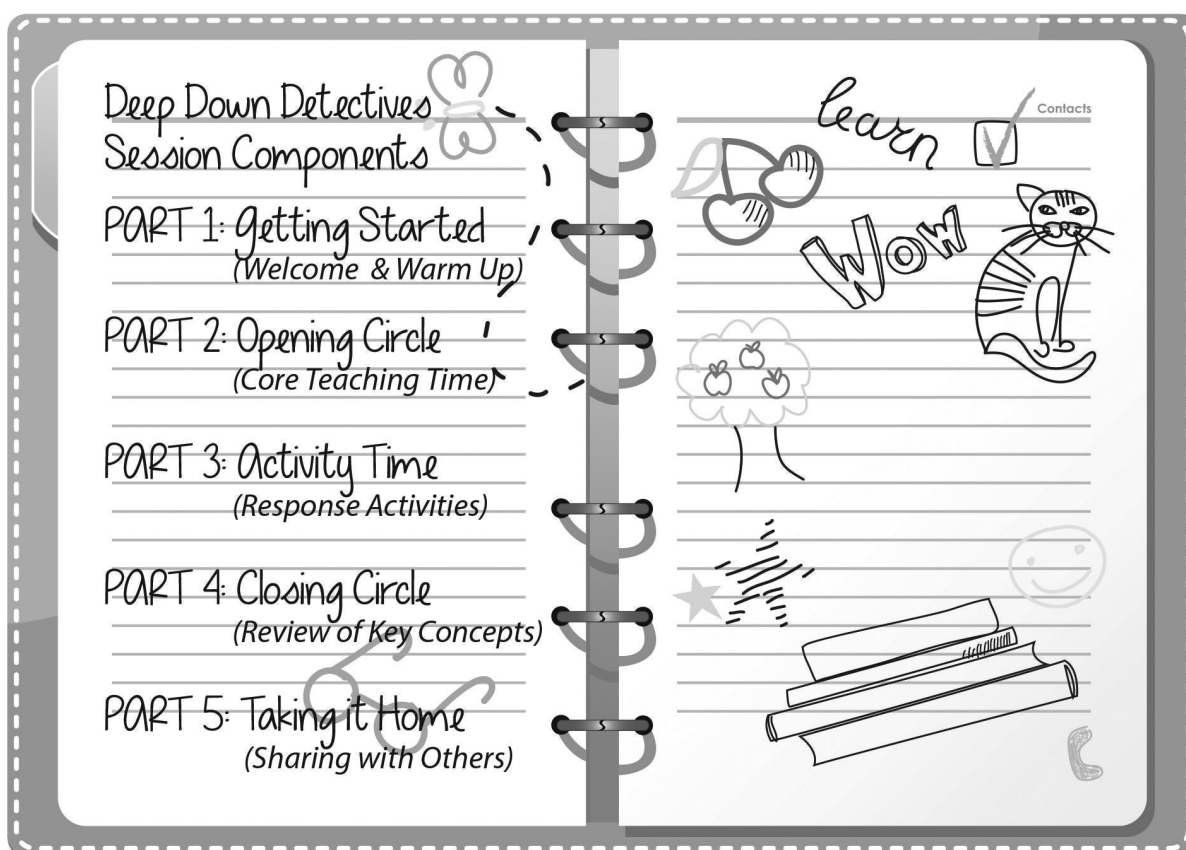 Deep Down Detectives
Session Components
PART 1: Getting Started
(Welcome & Warm Up)
PART 2: Opening Circle
(Core Teaching Time)
PART 3: Activity Time
(Response Activities)
PART 4: Closing Circle
(Review of Key Concepts)
PART 5: Taking it Home
(Sharing with Others)
learn
Contacts
Wow